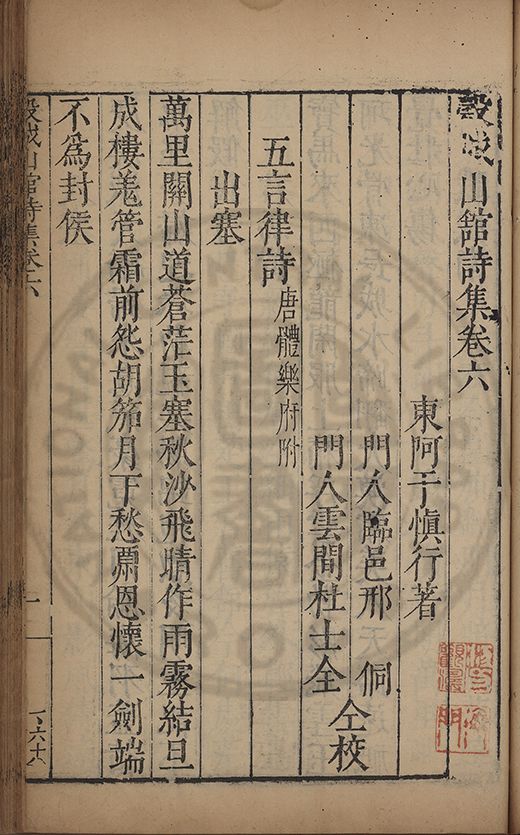 穀城山館詩集卷六
東阿于慎行著
門人臨邑邢　侗
門人雲間杜士全
仝校
五言律詩
唐體樂府附
出塞
萬里關山道蒼茫玉塞秋沙飛晴作雨霧結旦
成樓羗管霜前怨胡笳月下愁朙恩懷一劍端
不為封侯
穀城山館詩集卷六
一